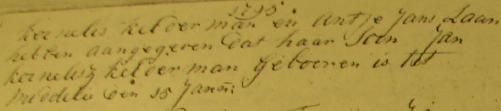 1795
Kornelis Kelderman en Antje Jans Laan
hebben aangegeven dat haar Soon Jan
Kornelisz Kelderman geboren is tot
Middelie den 15 Janu: